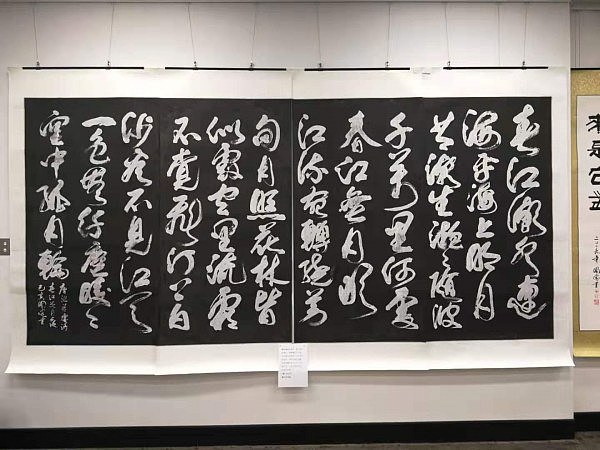 春江潮水連
海平海上明月
共潮生灧灧随波
千萬里何處
春江無月明
江流宛轉繞芳
甸月照花林皆
似霰空里流霜
不覺飛汀上白
沙看不見江天
一色無纖塵皎皎
空中孤月輪
唐張若虚詩
春江花月夜
己亥